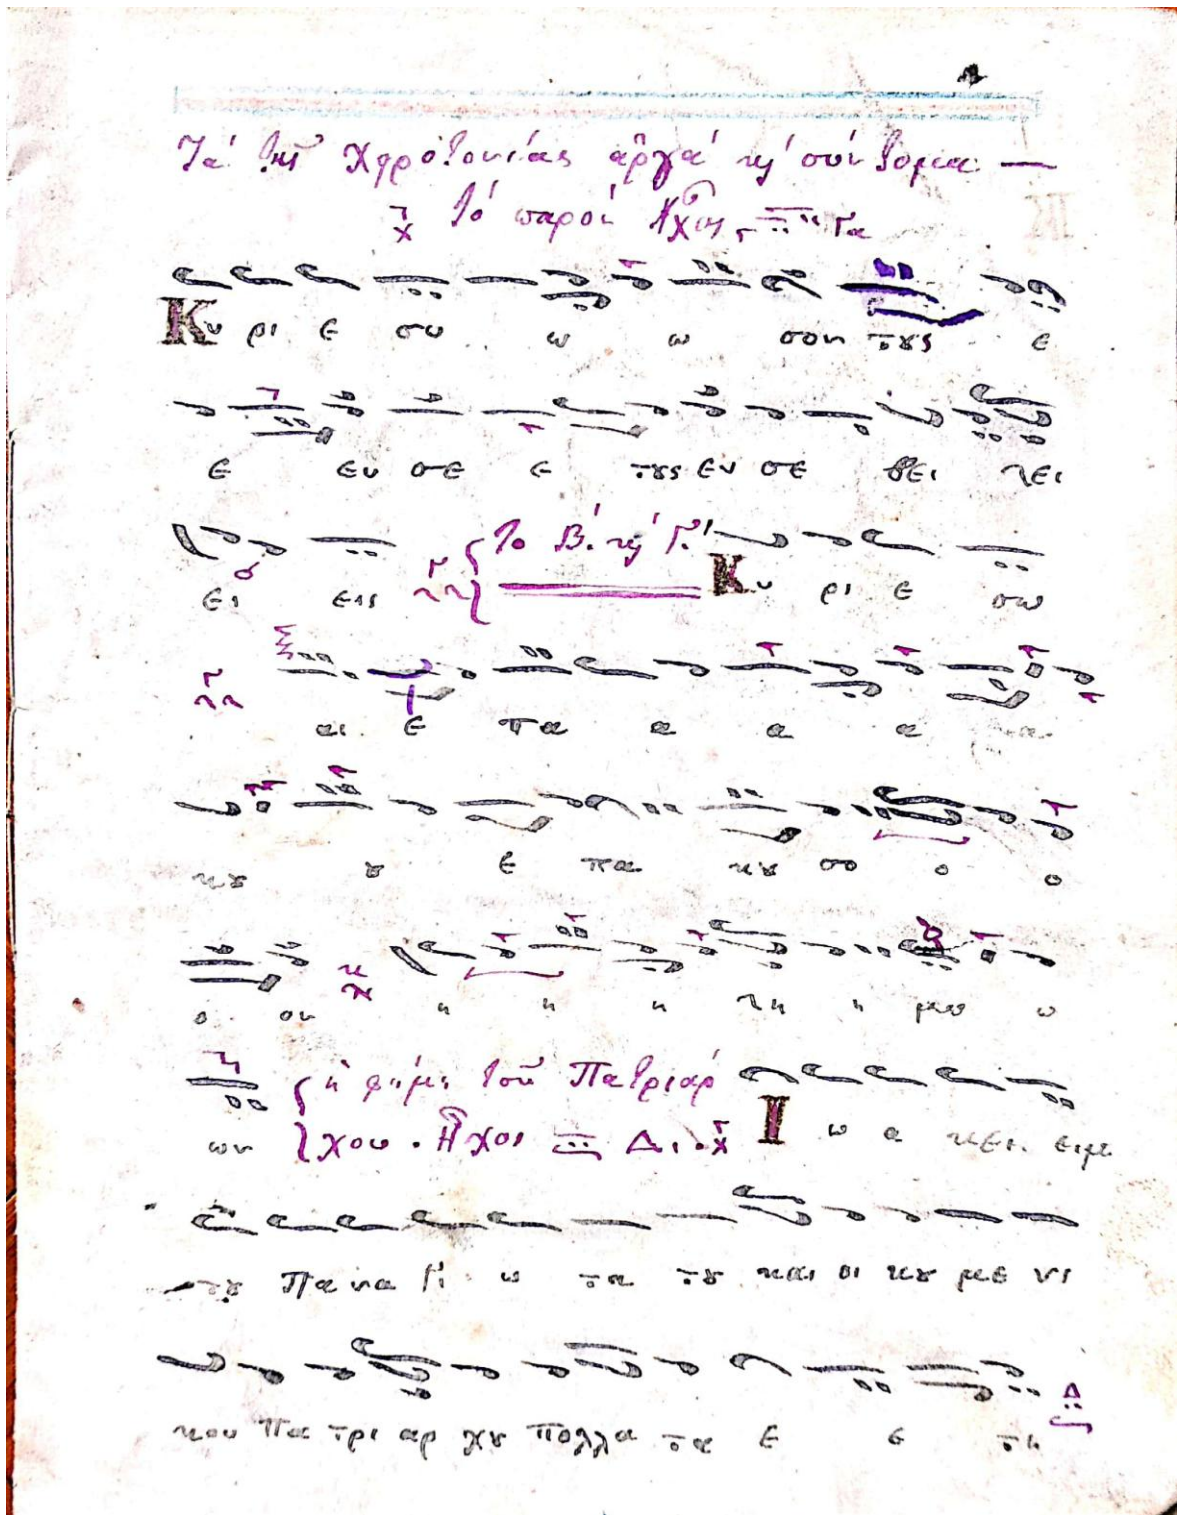 Τὰ τῆς χειροτονίας ἀργὰ καὶ σύντομα —
τὸ παρὸν Ἦχος Γα
Κυ ρι ε σω ω ω σον τους ε
ε ευ σε ε τους ευ σε βει λει
ει εις { Το Β. καὶ Γ. Κυ ρι ε σω
αι ε πα α α α
κου ου ε πα κου σο ο ο
ο ον η η η λη η μω ω
ων { ἡ φήμη τοῦ Πατριάρ Ι ω α κει ειμ
χου. Ἦχος Δι.
του Πα να γι ω τα του και οι κου με νι
κου Πα τρι αρ χου πολλα τα ε ε τη Δ